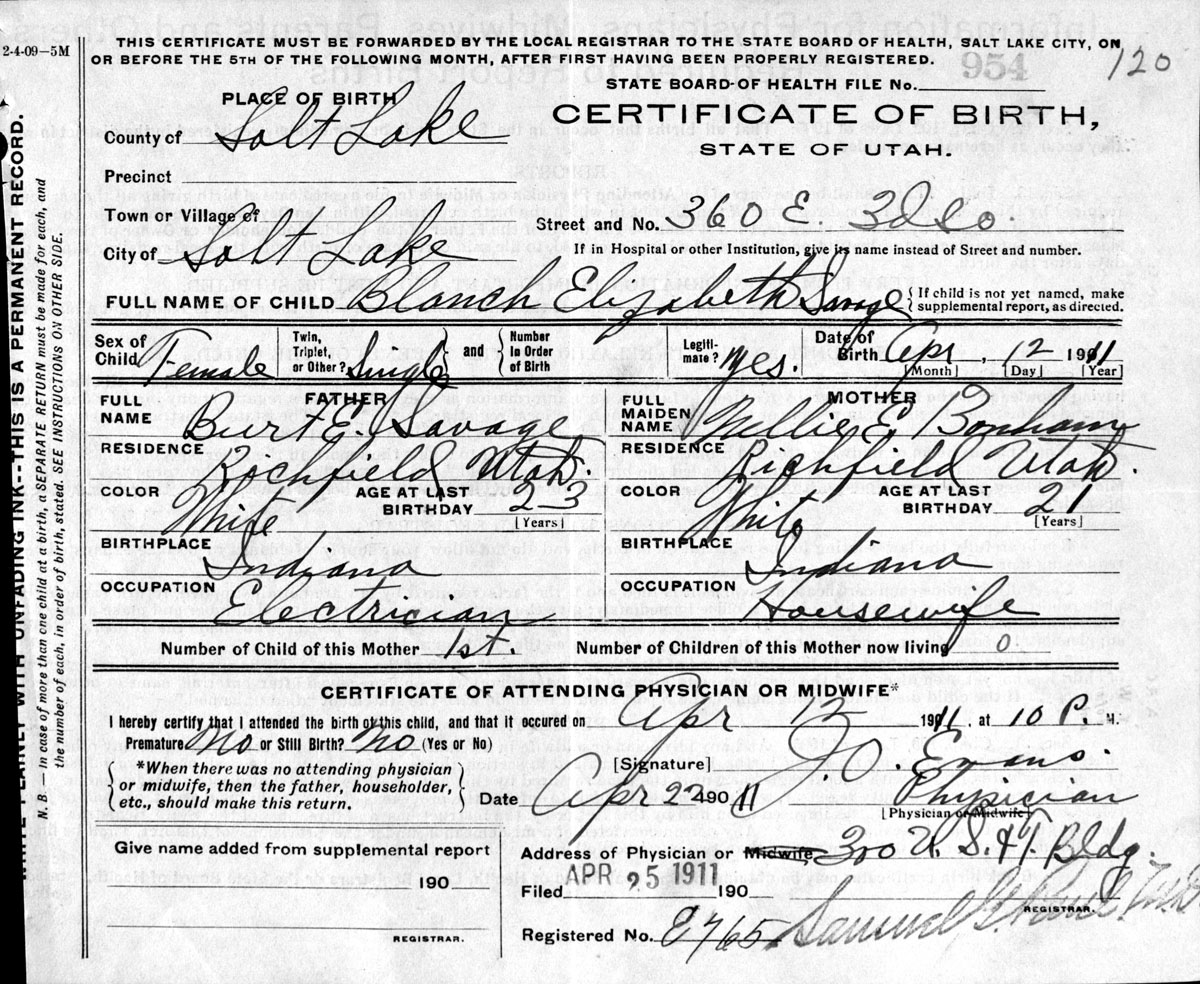 2-4-09—5M
THIS CERTIFICATE MUST BE FORWARDED BY THE LOCAL REGISTRAR TO THE STATE BOARD OF HEALTH, SALT LAKE CITY, ON
OR BEFORE THE 5TH OF THE FOLLOWING MONTH, AFTER FIRST HAVING BEEN PROPERLY REGISTERED.
954
120
STATE BOARD OF HEALTH FILE No.
PLACE OF BIRTH
CERTIFICATE OF BIRTH,
STATE OF UTAH.
County of Salt Lake
Precinct
Town or Village of
Street and No. 360 E
If in Hospital or other Institution, give its name instead of Street and number.
City of Salt Lake
FULL NAME OF CHILD Blanch Elizabeth Savage { If child is not yet named, make supplemental report, as directed.
Sex of Child Female Twin, Triplet, or Other? Single } and { Number in Order of Birth Legiti-mate? Yes. Date of Birth Apr, 12 1911
[Month] [Day] [Year]
FATHER
FULL NAME Burt E. Savage
RESIDENCE Rochfield Utah.
COLOR White AGE AT LAST BIRTHDAY 23 [Years]
BIRTHPLACE Indiana
OCCUPATION Electrician
MOTHER
FULL MAIDEN NAME Nellie E Bonham
RESIDENCE Richfield Utah.
COLOR White AGE AT LAST BIRTHDAY 21 [Years]
BIRTHPLACE Indiana
OCCUPATION Housewife
Number of Child of this Mother 1st. Number of Children of this Mother now living 0
CERTIFICATE OF ATTENDING PHYSICIAN OR MIDWIFE*
I hereby certify that I attended the birth of this child, and that it occured on Apr 12 1911, at 10 P. M.
Premature? No or Still Birth? No (Yes or No)
*When there was no attending physician
or midwife, then the father, householder,
etc., should make this return.
[Signature] Evans
Date Apr 22 190 11 Physician
[Physician or Midwife]
Give name added from supplemental report
190
REGISTRAR.
Address of Physician or Midwife 300 Bldg.
Filed APR 25 1911 190
REGISTRAR.
Registered No. 765 Samuel
WRITE PLAINLY WITH UNFADING INK--THIS IS A PERMANENT RECORD.
N. B.— In case of more than one child at a birth, a SEPARATE RETURN must be made for each, and
the number of each, in order of birth, stated. SEE INSTRUCTIONS ON OTHER SIDE.